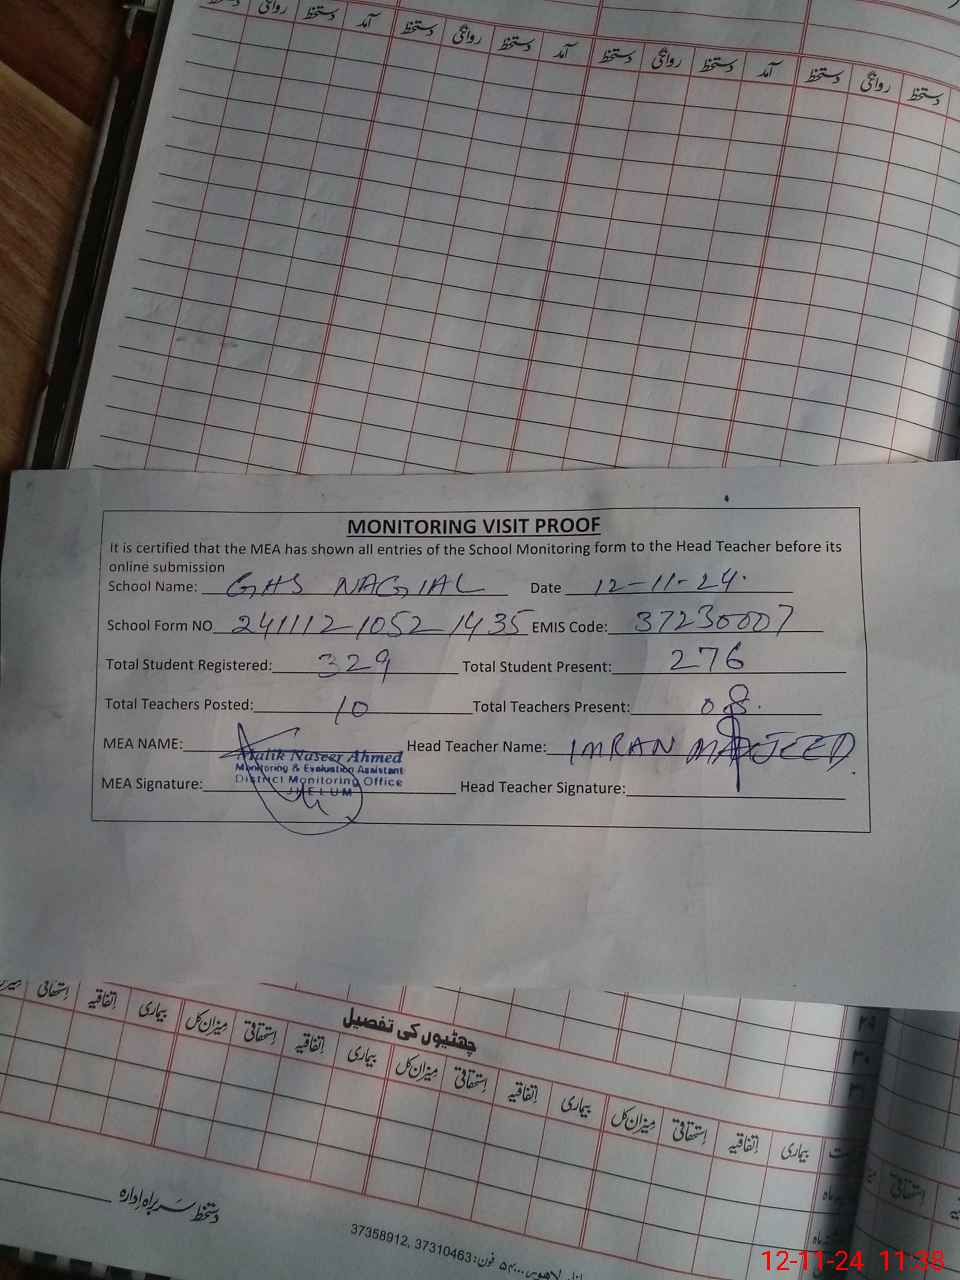 دستخط روانگی دستخط آمد دستخط روانگی دستخط آمد دستخط روانگی دستخط آمد دستخط روانگی دستخط
MONITORING VISIT PROOF
It is certified that the MEA has shown all entries of the School Monitoring form to the Head Teacher before its
online submission
School Name: GHS NAGIAL Date 12-11-24.
School Form NO 241112 1052 1435 EMIS Code: 37230007
Total Student Registered: 329 Total Student Present: 276
Total Teachers Posted: 10 Total Teachers Present: 08.
MEA NAME: Malik Naseer Ahmed Head Teacher Name: IMRAN MAJEED.
Monitoring & Evaluation Assistant
District Monitoring Office
MEA Signature: JHELUM Head Teacher Signature:
چھٹیوں کی تفصیل
استحقاقی اتفاقیہ بیماری میزان کل استحقاقی اتفاقیہ بیماری میزان کل استحقاقی اتفاقیہ بیماری میزان کل استحقاقی اتفاقیہ بیماری
۲۹
۳۰
۳۱
استحقاقی
دستخط سربراہ ادارہ
فون: 37310463 ,37358912
12-11-24 11:38